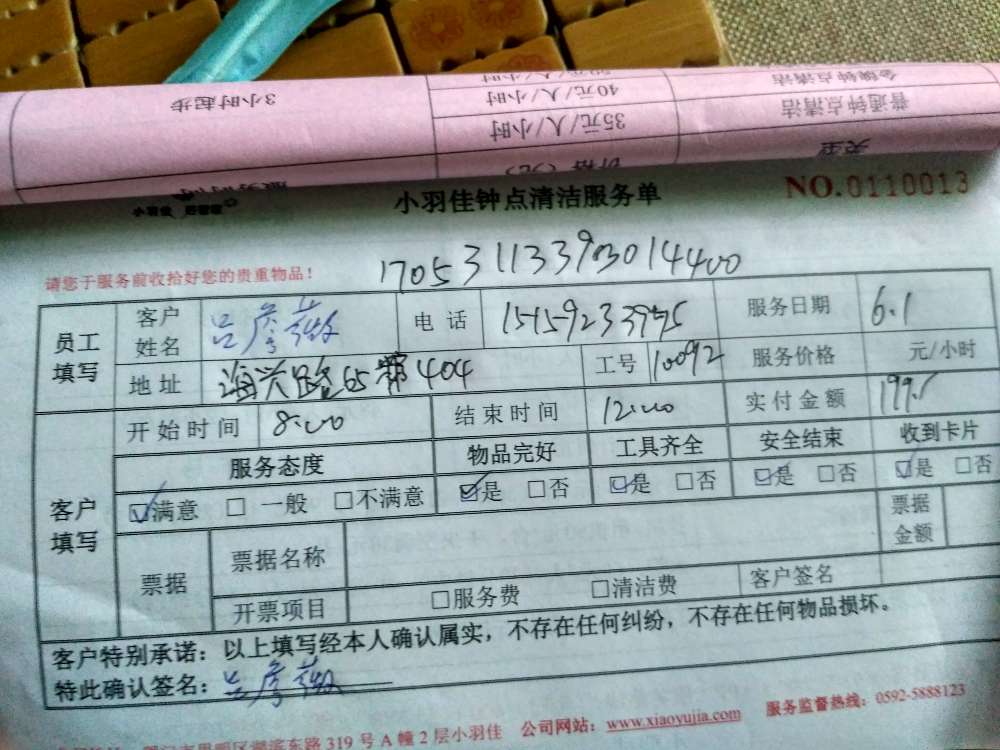 3小时起步
40元/人/小时
金牌钟点清洁
35元/人/小时
普通钟点清洁
价格（元）
类型
小羽佳钟点清洁服务单
NO.0110013
请您于服务前收拾好您的贵重物品！
员工填写
客户姓名
电话
服务日期 6.1
地址 海兴路65 404
工号 10092
服务价格 元/小时
客户填写
开始时间 8:00
结束时间 12:00
实付金额 199.
服务态度
物品完好
工具齐全
安全结束
收到卡片
☑满意 □一般 □不满意
☑是 □否
☑是 □否
☑是 □否
☑是 □否
票据
票据名称
票据金额
开票项目
□服务费 □清洁费
客户签名
客户特别承诺：以上填写经本人确认属实，不存在任何纠纷，不存在任何物品损坏。
特此确认签名：
东路319号A幢2层小羽佳 公司网站：www.xiaoyujia.com 服务监督热线：0592-5888123